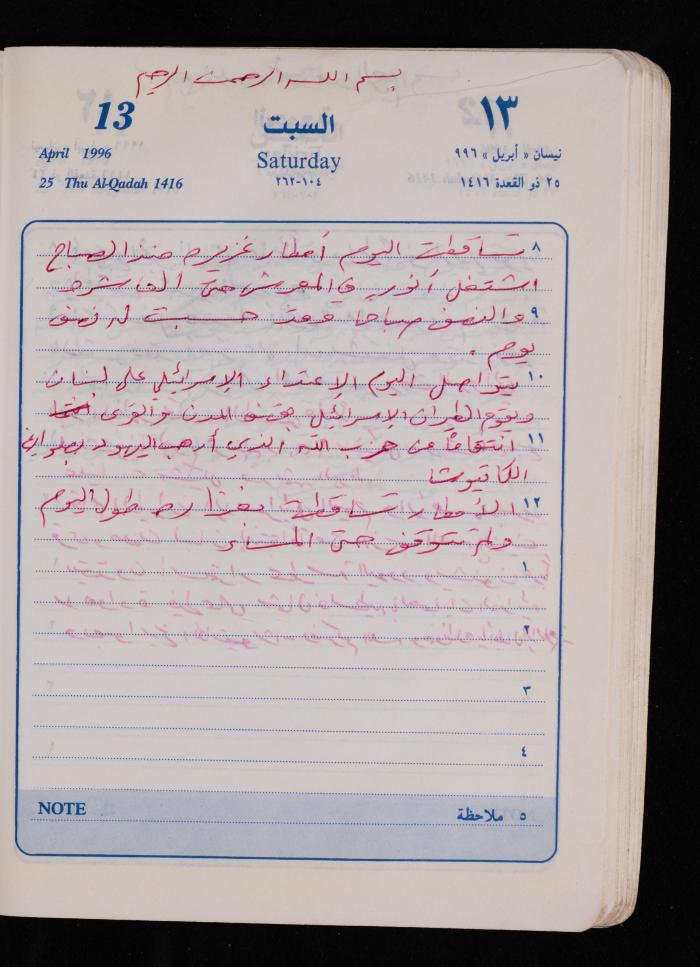 بسم الله الرحمن الرحيم
13 السبت ١٣
April 1996 Saturday نيسان « أبريل » ٩٩٦
25 Thu Al-Qadah 1416 ٢٦٢-١٠٤ ٢٥ ذو القعدة ١٤١٦
٨ تساقطت اليوم أمطار غزيره منذ الصباح
اشتغل أنور في المعرش حتى العاشرة
٩ والنصف صباحا وقد حسبت له نصف
يوم .
١٠ يتواصل اليوم الإعتداء الإسرائيلي على لبنان
ويقوم الطيران الإسرائيلي بقصف المدن والقرى
١١ انتقاماً من حزب الله الذي أرهب اليهود بصواريخ
الكاتيوشا
١٢ الأمطار تساقطت بغزاره طول اليوم
ولم تتوقف حتى المساء
١
٢
٣
٤
NOTE ٥ ملاحظة